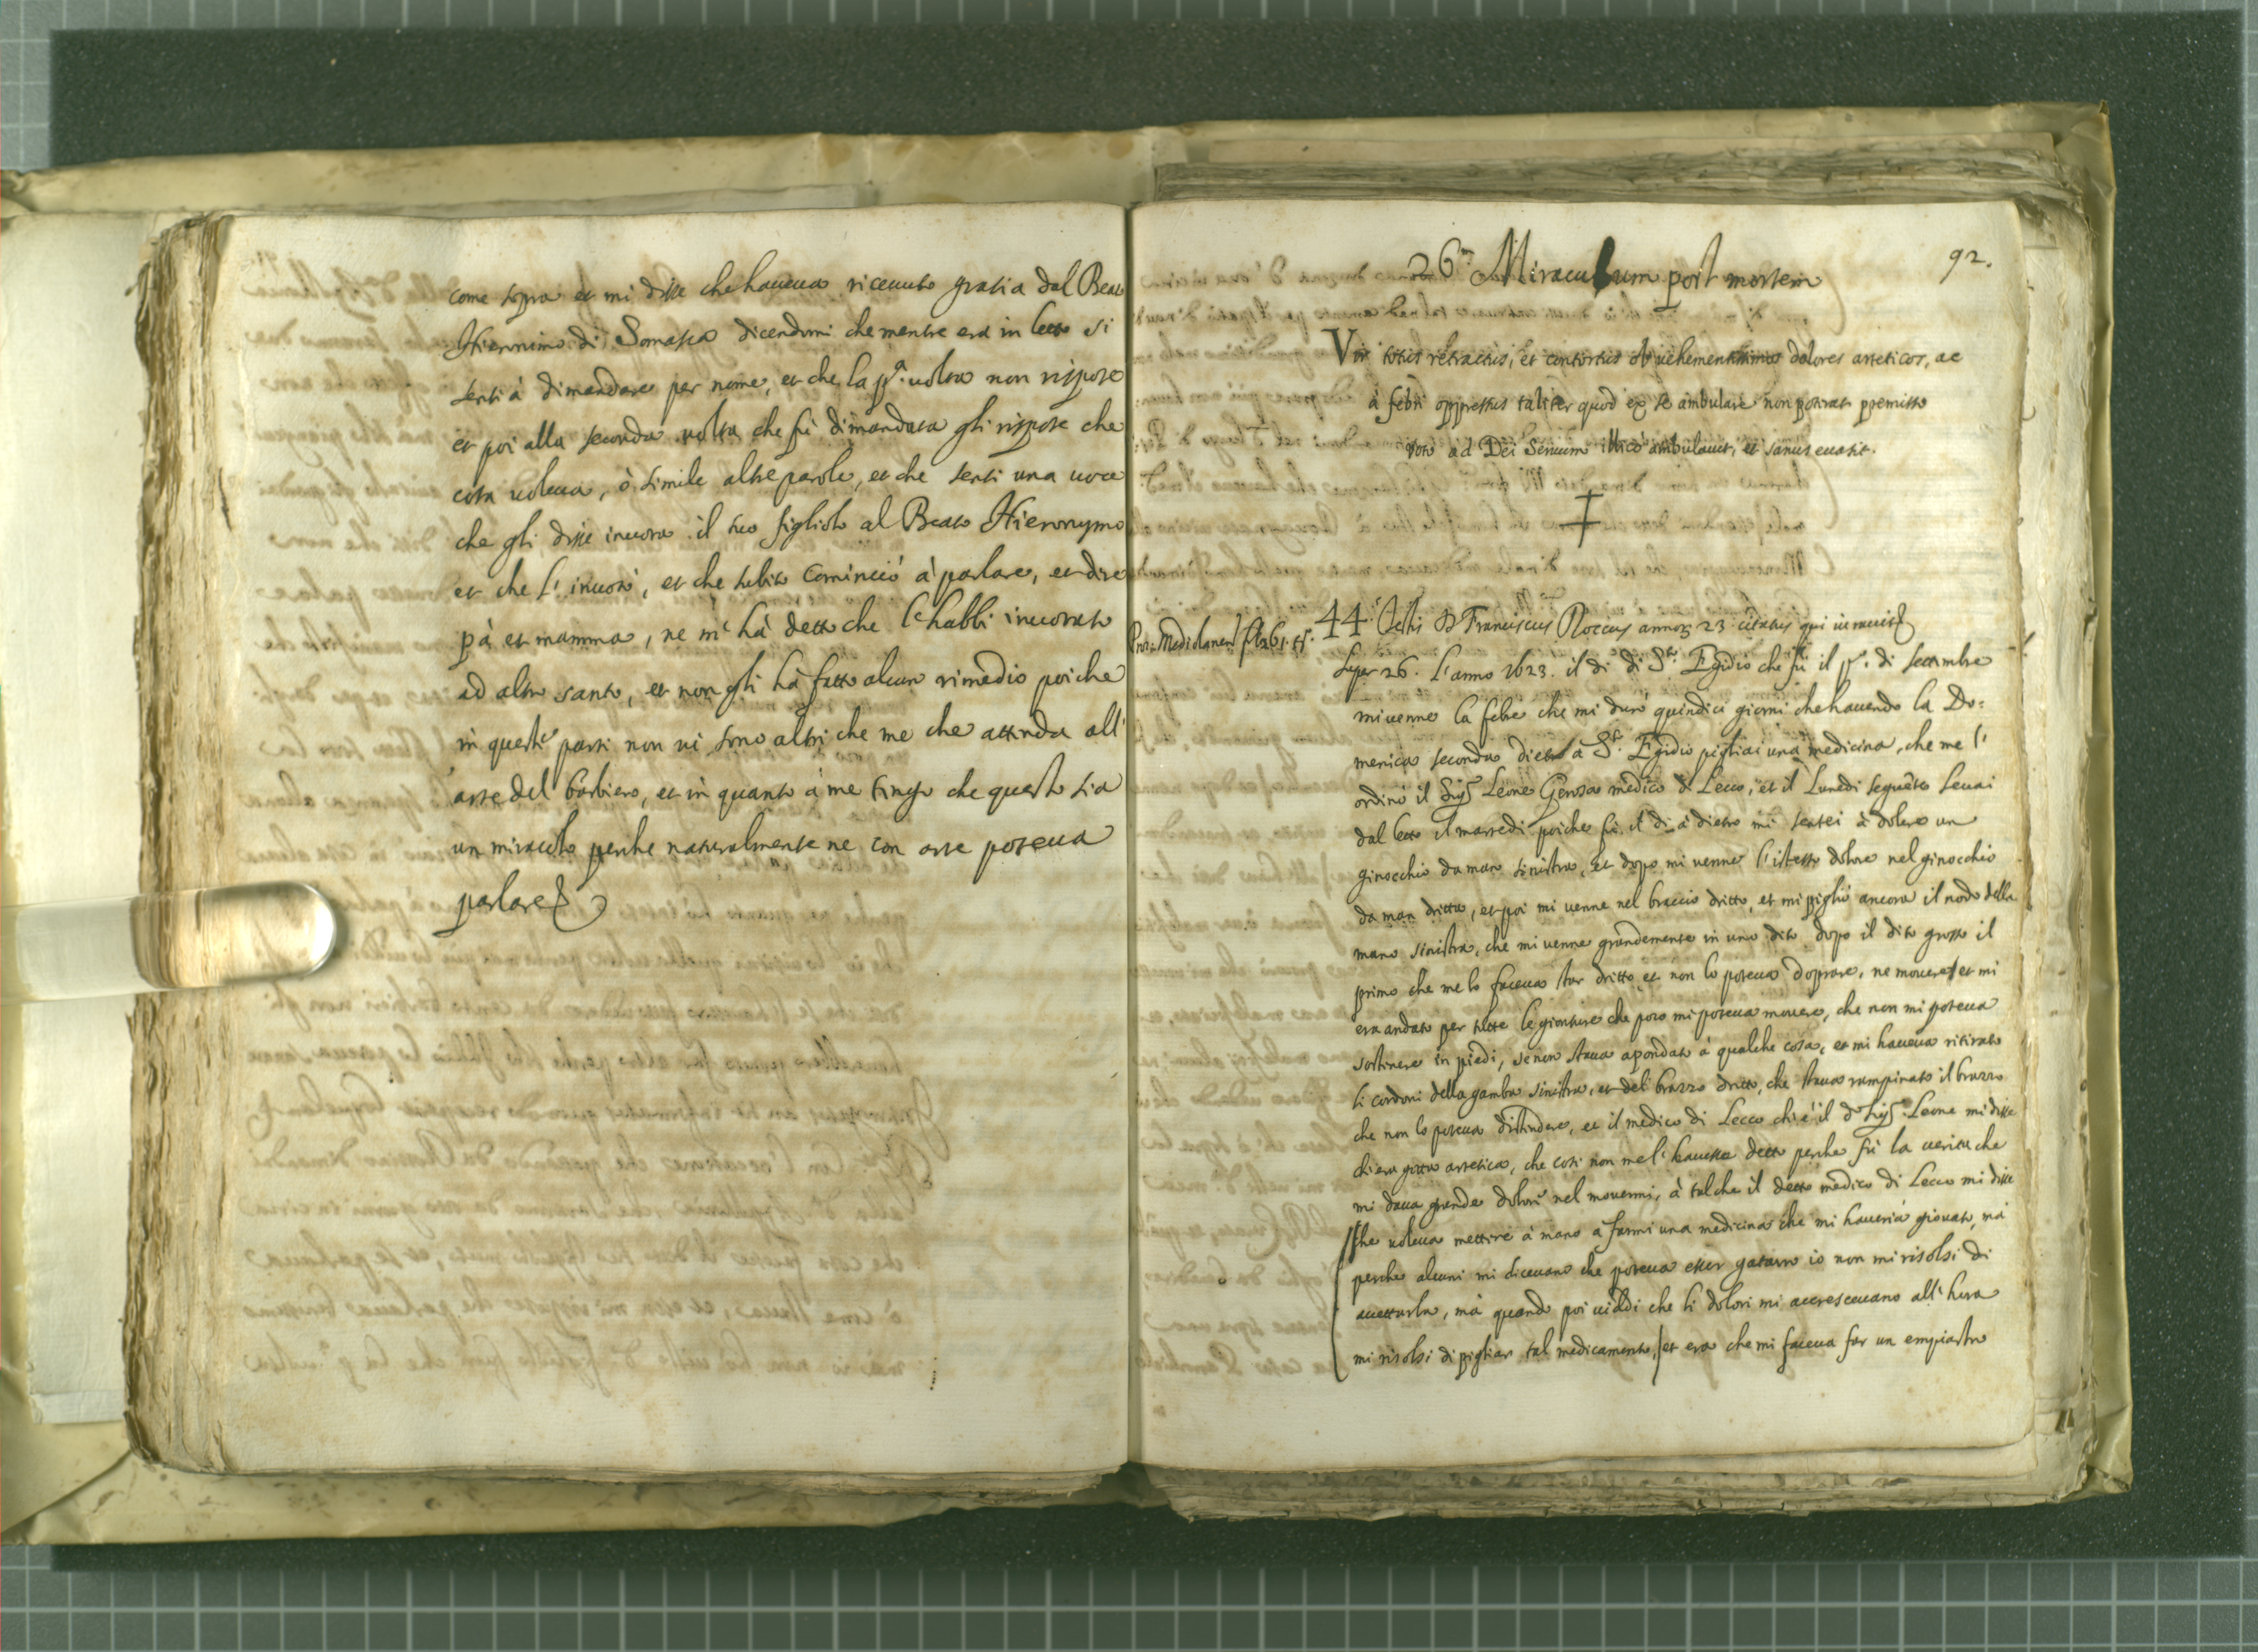 come sopra et mi disse che haueua riceuuto gratia dal Beato
Hieronimo di Somasca dicendomi che mentre era in letto si
senti à dimandare per nome, et che la pª. uolta non rispose
et poi alla seconda uolta che fù dimandata gli rispose che
cosa uoleua, ò simile altre parole, et che senti una uoce
che gli disse inuota il tuo figliolo al Beato Hieronymo
et che l'inuotò, et che subito Cominciò à parlare, et dire
pà et mamma, ne m'hà detto che l'habbi inuotato
ad altro santo, et non gli hà fatto alcun rimedio poiche
in queste parti non ui sono altri che me che attenda all'
arte del barbiero, et in quanto à me tengo che questo sia
un miracolo perche naturalmente ne con arte poteua
parlare
92.
26.m Miraculum post mortem
Vir totus retractus, et contortus ob uehementissimos dolores arteticos, ac
à febri oppressus taliter quod ex se ambulare non poterat premisso
voto ad Dei Seruum illicò ambulauit, et sanus euasit.
Pro. Mediolanen fl. 261. tt.
44. Testis D. Franciscus Roccus annoʒ 23 citatus qui iurauit
Super 26. l'anno 1623. il di di Sto. Egidio che fù il po. di settembre
mi uenne la febre che mi durò quindici giorni che hauendo la Do=
menica seconda dietro à Sto. Egidio pigliai una medicina, che me l'
ordinò il Sigr Leone Gerosa medico di Lecco, et il Lunedi seguẽte leuai
dal letto il martedi poiche fù il di à dietro mi sentei à dolere un
ginocchio da man sinistra, et dopo mi uenne l'istesso dolore nel ginocchio
da man dritta, et poi mi uenne nel braccio dritto, et mi pigliò ancora il nodo della
mano sinistra, che mi uenne grandemente in uno dito dopo il dito grosso il
primo che me lo faceua star dritto et non lo poteua doprare, ne mouere et mi
era andato per tutte le gionture che poco mi poteua mouere, che non mi poteua
sostinere in piedi, se non staua apondato à qualche cosa, et mi haueua ritirato
li cordoni della gamba sinistra, et del brazzo dritto, che staua rampinato il brazzo
che non lo poteua distindere, et il medico di Lecco chi è il do Sigr. Leone mi disse
chi era gotta artetica, che cosi non me l'hauesse detto perche fù la uerità che
mi daua grande dolori nel mouermi, à tal che il detto medico di Lecco mi disse
che uoleua mettere à mano a farmi una medicina che mi haueria giouato, mà
perche alcuni mi diceuano che poteua esser gatarro io non mi risolsi di
accettarla, mà quando poi uiddi che li dolori mi accresceuano all'hora
mi risolsi di pigliar tal medicamento, et era che mi faceua far un empiastro